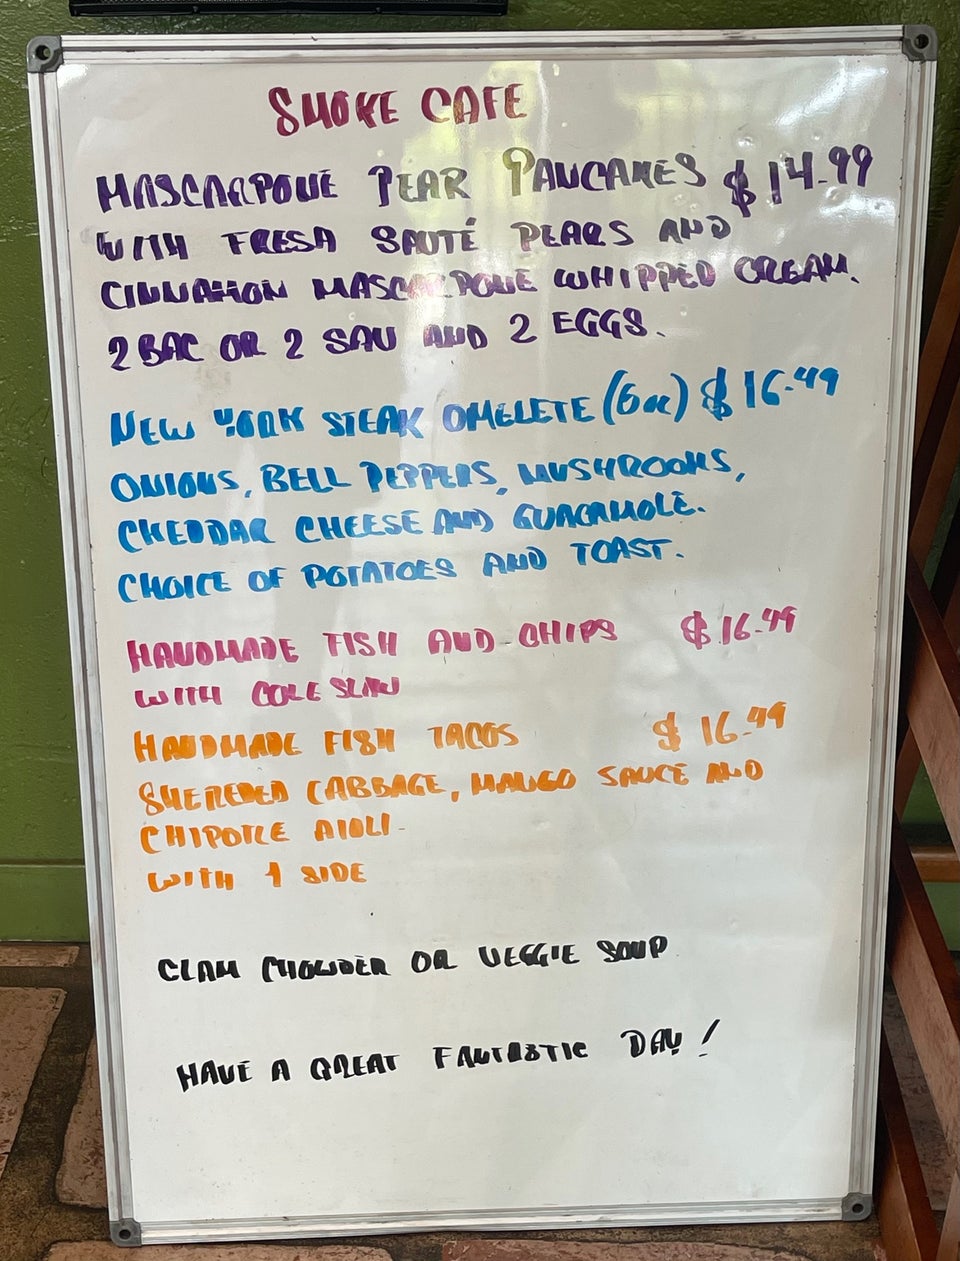 SMOKE CAFE
MASCARPONE PEAR PANCAKES $14.99
WITH FRESH SAUTÉ PEARS AND
CINNAMON MASCARPONE WHIPPED CREAM.
2 BAC OR 2 SAU AND 2 EGGS.
NEW YORK STEAK OMELETE (6oz) $16.49
ONIONS, BELL PEPPERS, MUSHROOMS,
CHEDDAR CHEESE AND GUACAMOLE.
CHOICE OF POTATOES AND TOAST.
HANDMADE FISH AND CHIPS $16.49
WITH COLE SLAW
HANDMADE FISH TACOS $16.49
SHEREDED CABBAGE, MANGO SAUCE AND
CHIPOTLE AIOLI.
WITH 1 SIDE
CLAM CHOWDER OR VEGGIE SOUP
HAVE A GREAT FANTASTIC DAY!